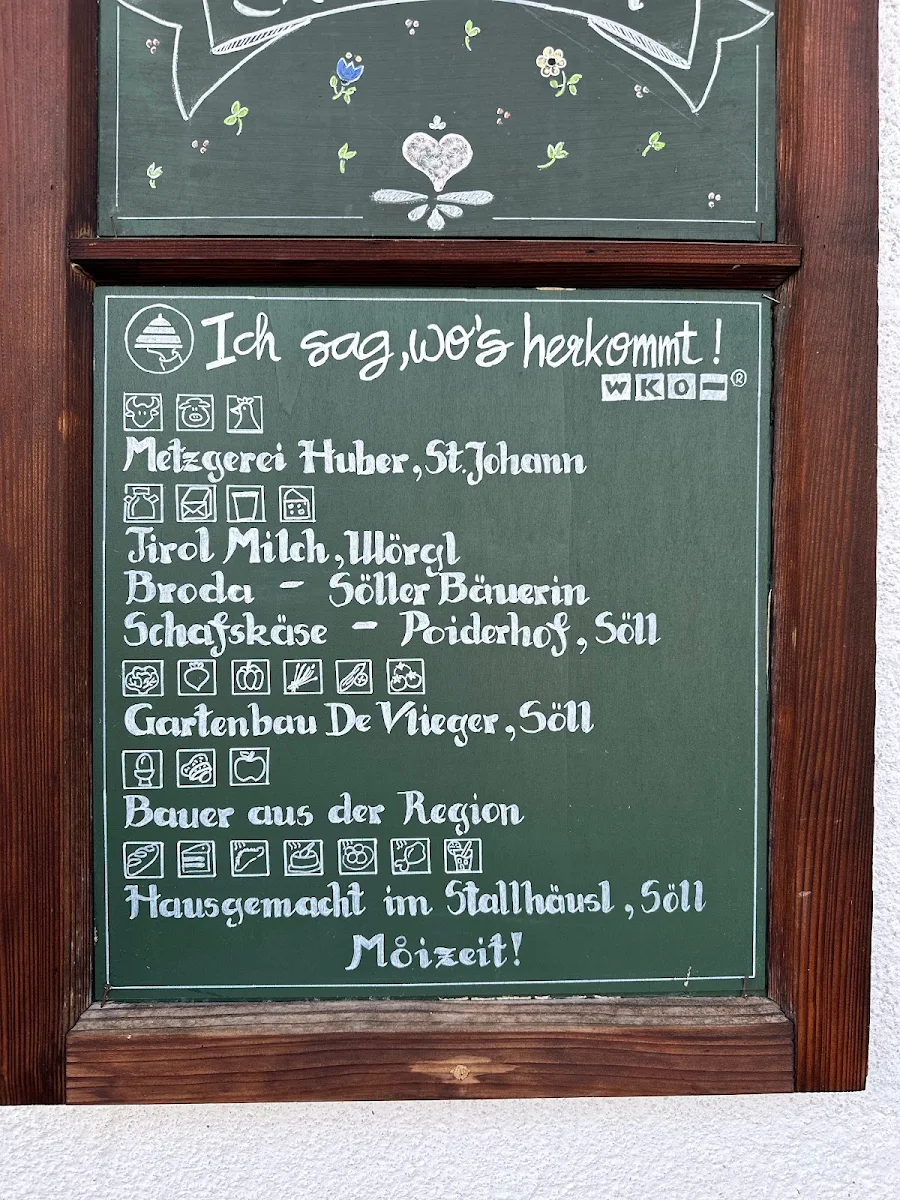 Ich sag, wo's herkommt!
WKO ®
Metzgerei Huber, St. Johann
Tirol Milch, Wörgl
Broda - Söller Bäuerin
Schafskäse - Poiderhof, Söll
Gartenbau De Vlieger, Söll
Bauer aus der Region
Hausgemacht im Stallhäusl, Söll
Måizeit!